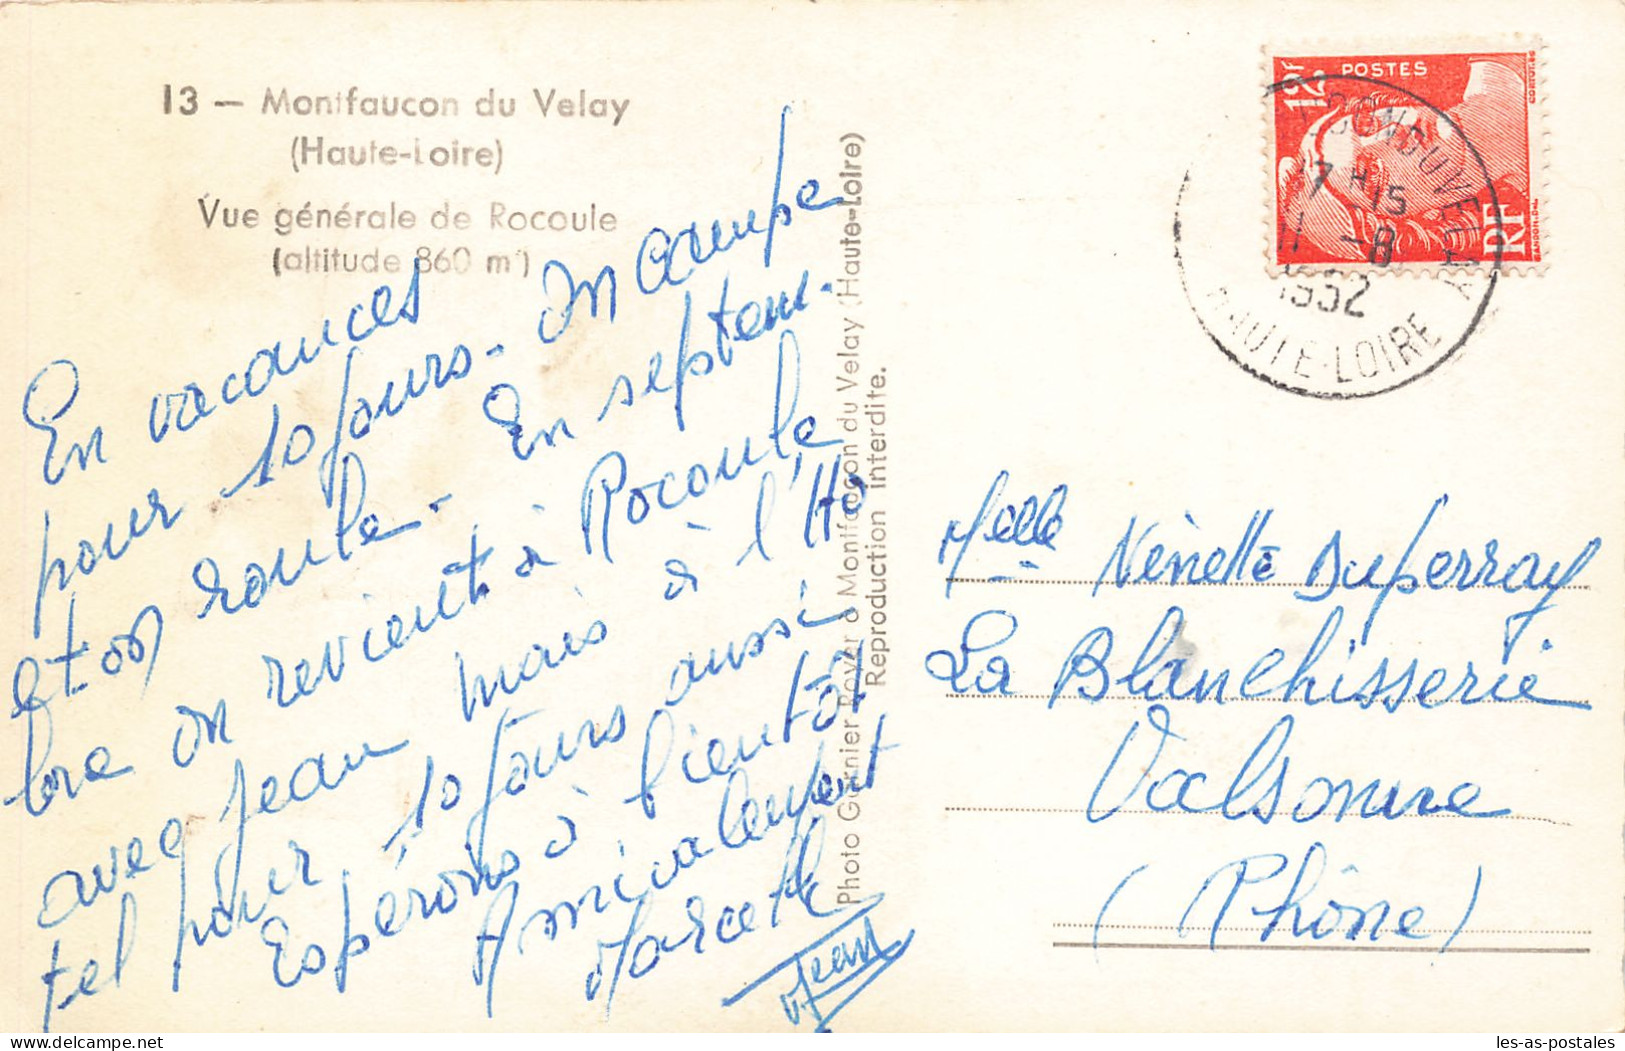 13 — Montfaucon du Velay
(Haute-Loire)
Vue générale de Rocoule
(altitude 860 m)
En vacances
pour 10 jours. On campe
et on roule. En septem-
bre on revient à Rocoule
avec Jean mais à l'Hô
tel pour 10 jours aussi
Espérons à bientôt
Amicalement
Marcelle
Jean
Photo Garnier Royer à Montfaucon du Velay (Haute-Loire)
Reproduction interdite.
12F POSTES
RF
17 H 15
11 -8
1952
HAUTE-LOIRE
Melle Nénette Duperray
La Blanchisserie
Valsonne
(Rhône)
les-as-postales